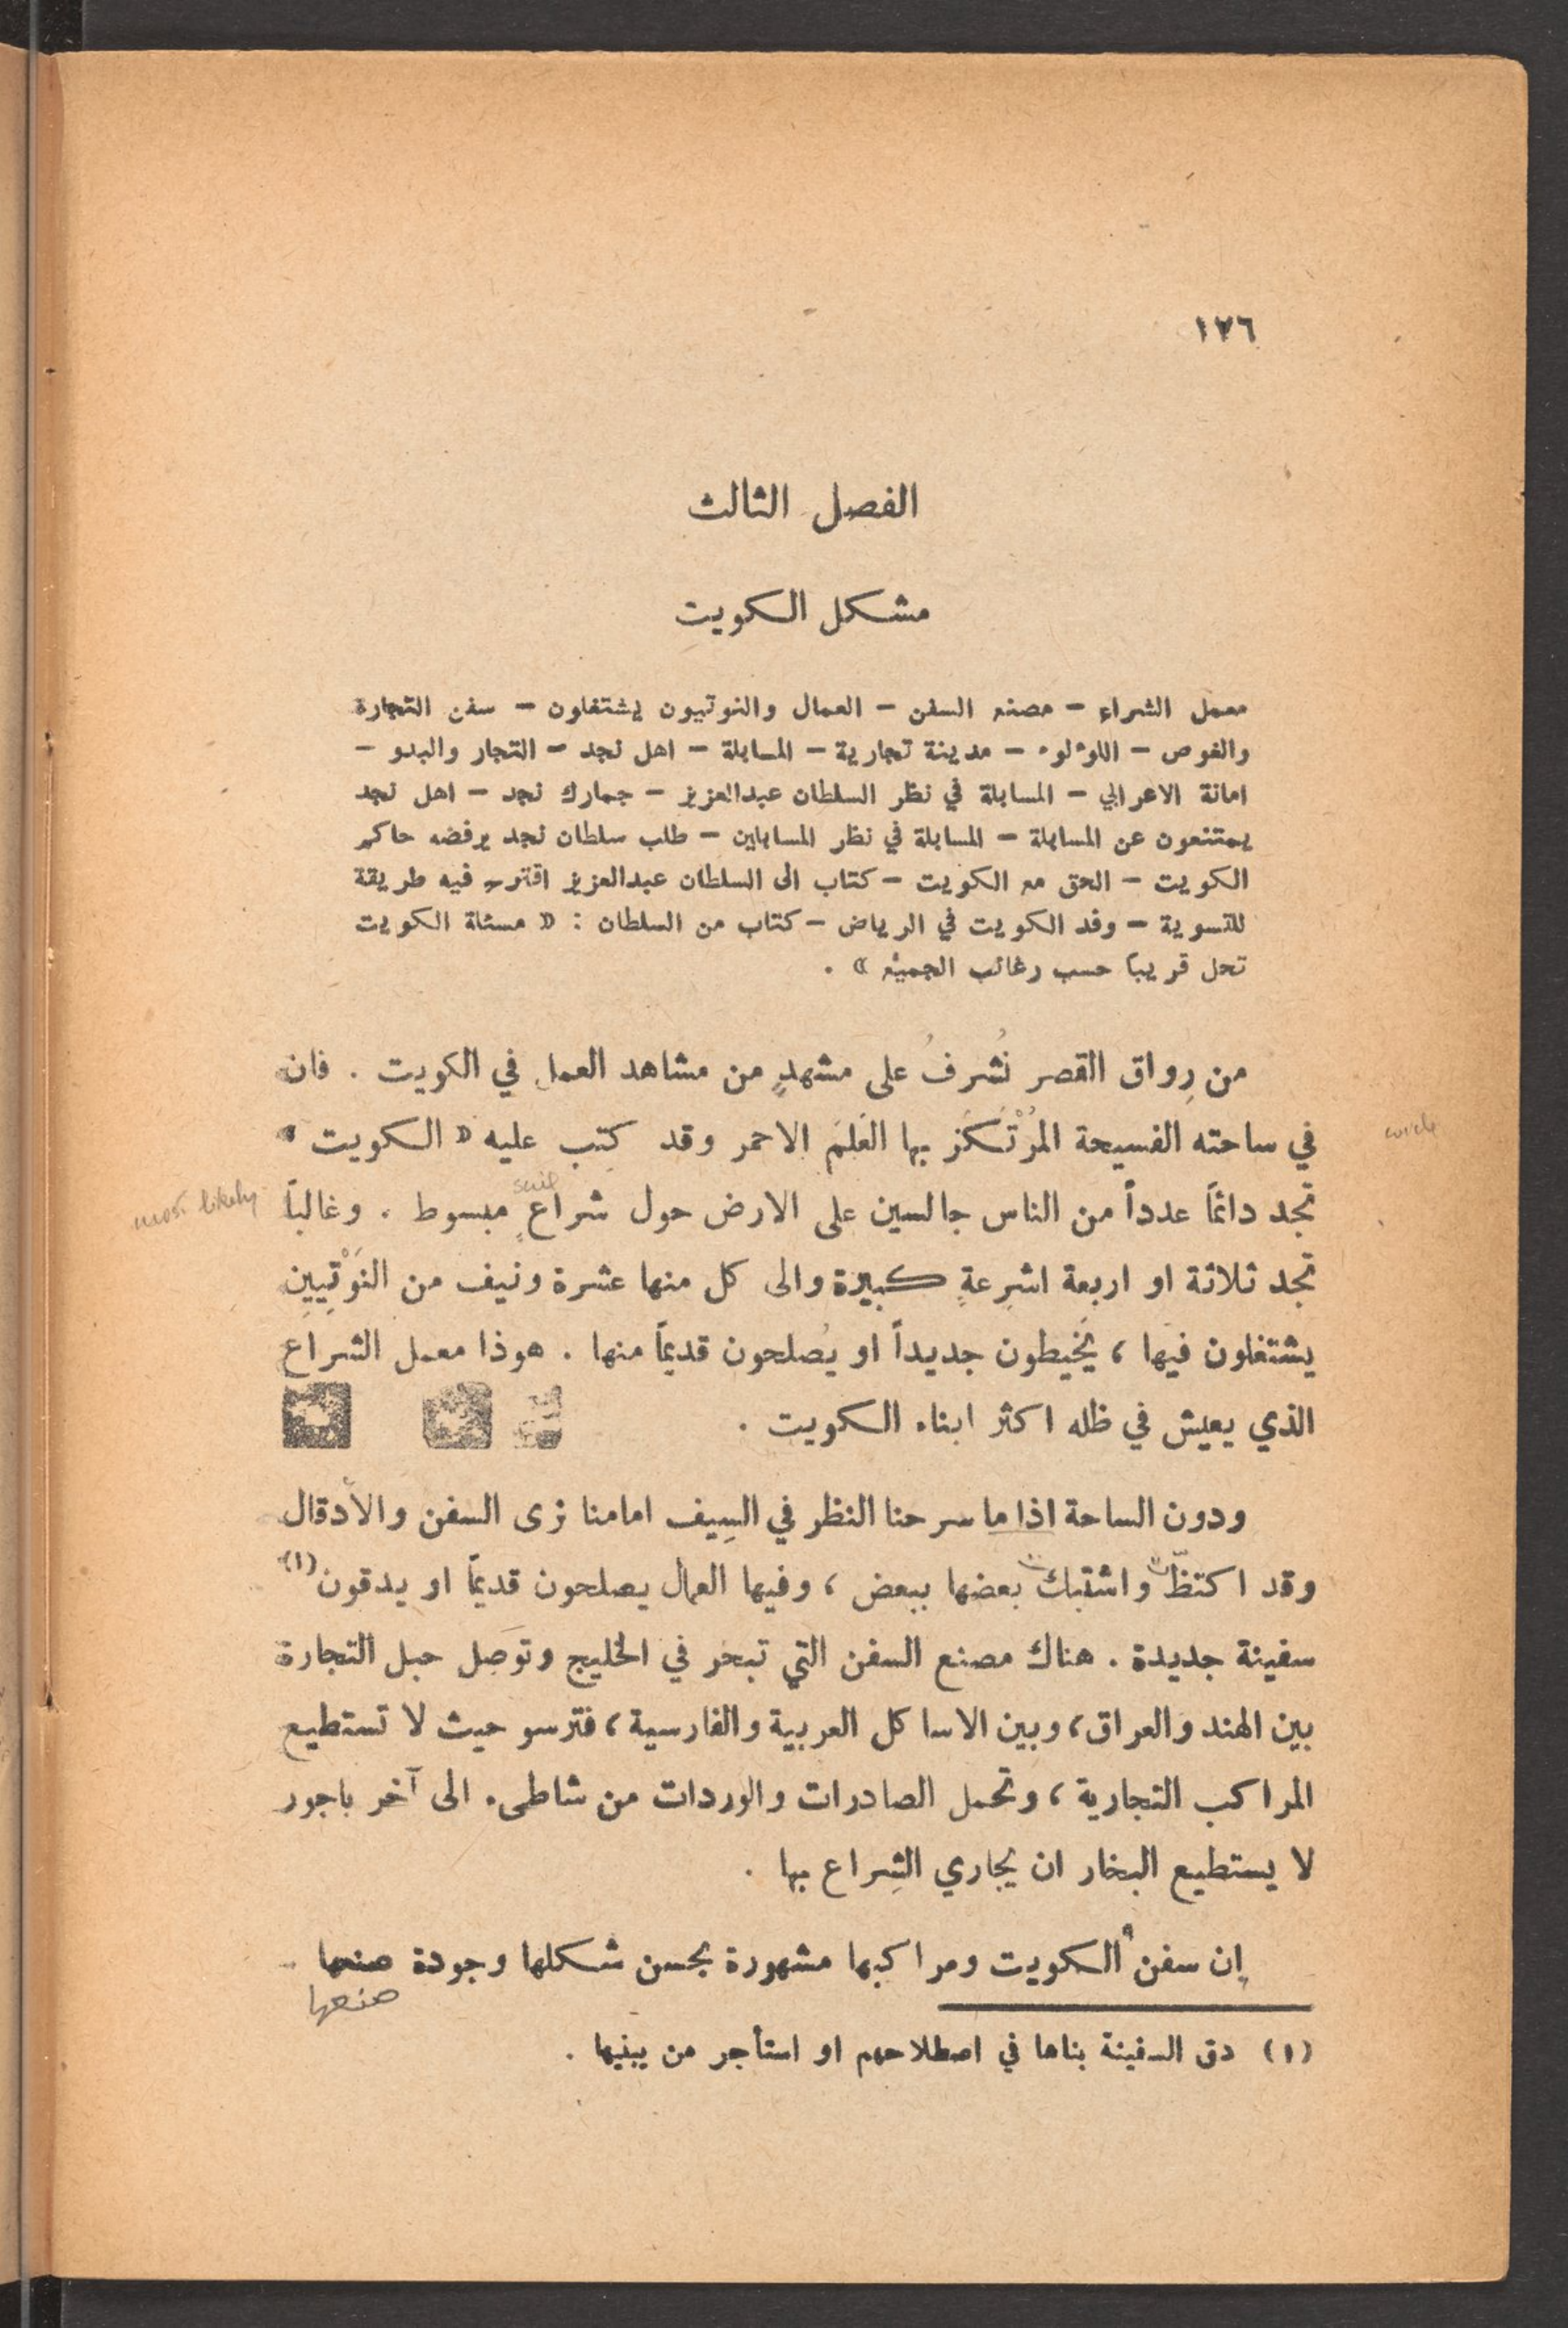 ١٧٦
الفصل الثالث
مشكل الكويت
معمل الشراع – مصنع السفن – العمال والنوتيون يشتغلون – سفن التجارة
والغوص – اللؤلؤ – مدينة تجارية – المسابلة – اهل نجد – التجار والبدو –
امانة الاعرابي – المسابلة في نظر السلطان عبدالعزيز – جمارك نجد – اهل نجد
يمتنعون عن المسابلة – المسابلة في نظر المسابلين – طلب سلطان نجد يرفضه حاكم
الكويت – الحق مع الكويت – كتاب الى السلطان عبدالعزيز اقترح فيه طريقة
للتسوية – وفد الكويت في الرياض – كتاب من السلطان : « مسئلة الكويت
تحل قريباً حسب رغائب الجميع » .
من رِواق القصر نُشرفُ على مشهدٍ من مشاهد العمل في الكويت . فان
في ساحته الفسيحة المُرْتَكَز بها العَلَمَ الاحمر وقد كتب عليه « الكويت » circle
sail
most likely تجد دائماً عدداً من الناس جالسين على الارض حول شراعٍ مبسوط . وغالباً
تجد ثلاثة او اربعة اشرِعةٍ كبيرة والى كل منها عشرة ونيف من النَوْتِيينِ
يشتغلون فيها ، يَخيطون جديداً او يُصلحون قديماً منها . هوذا معمل الشراع
الذي يعيش في ظله اكثر ابناء الكويت .
ودون الساحة اذا ما سرحنا النظر في السِيف امامنا نرى السفن والأدقال
وقد اكتظّت واشتبكت بعضها ببعض ، وفيها العمال يصلحون قديماً او يدقون (١)
سفينة جديدة . هناك مصنع السفن التي تبحر في الخليج وتوَصِل حبل التجارة
بين الهند والعراق ، وبين الاساكل العربية والفارسية ، فترسو حيث لا تستطيع
المراكب التجارية ، وتحمل الصادرات والوردات من شاطىء الى آخر باجور
لا يستطيع البخار ان يجاري الشِراع بها .
إن سفن الكويت ومراكبها مشهورة بحسن شكلها وجودة صنعها
صنعها
(١) دق السفينة بناها في اصطلاحهم او استأجر من يبنيها .